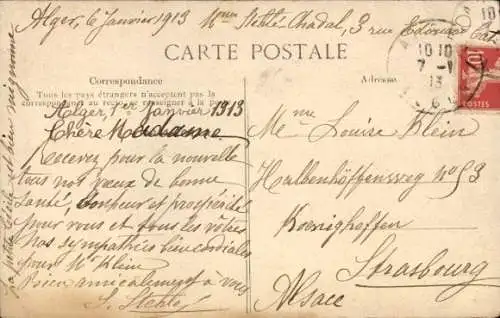 Alger, 6 Janvier 1913 Mme Stehlé-Chadal, 3 rue Edouard Cat
CARTE POSTALE
Correspondance
Tous les pays étrangers n'acceptent pas la
correspondance au recto, se renseigner à la
Adresse
Alger, 1er Janvier 1913
Chère Madame
recevez pour la nouvelle
tous nos vœux de bonne
Santé, bonheur et prospérité
pour vous et tous les vôtres
nos sympathies bien cordiales
pour Mr Klein
Bien amicalement à vous
S. Stehlé
la petite Cécile est bien mignonne
Mme Louise Klein
Halbenhöffensweg No 53
Koenighoffen
Strasbourg
Alsace
10 10
7 - 1
13
10
POSTES